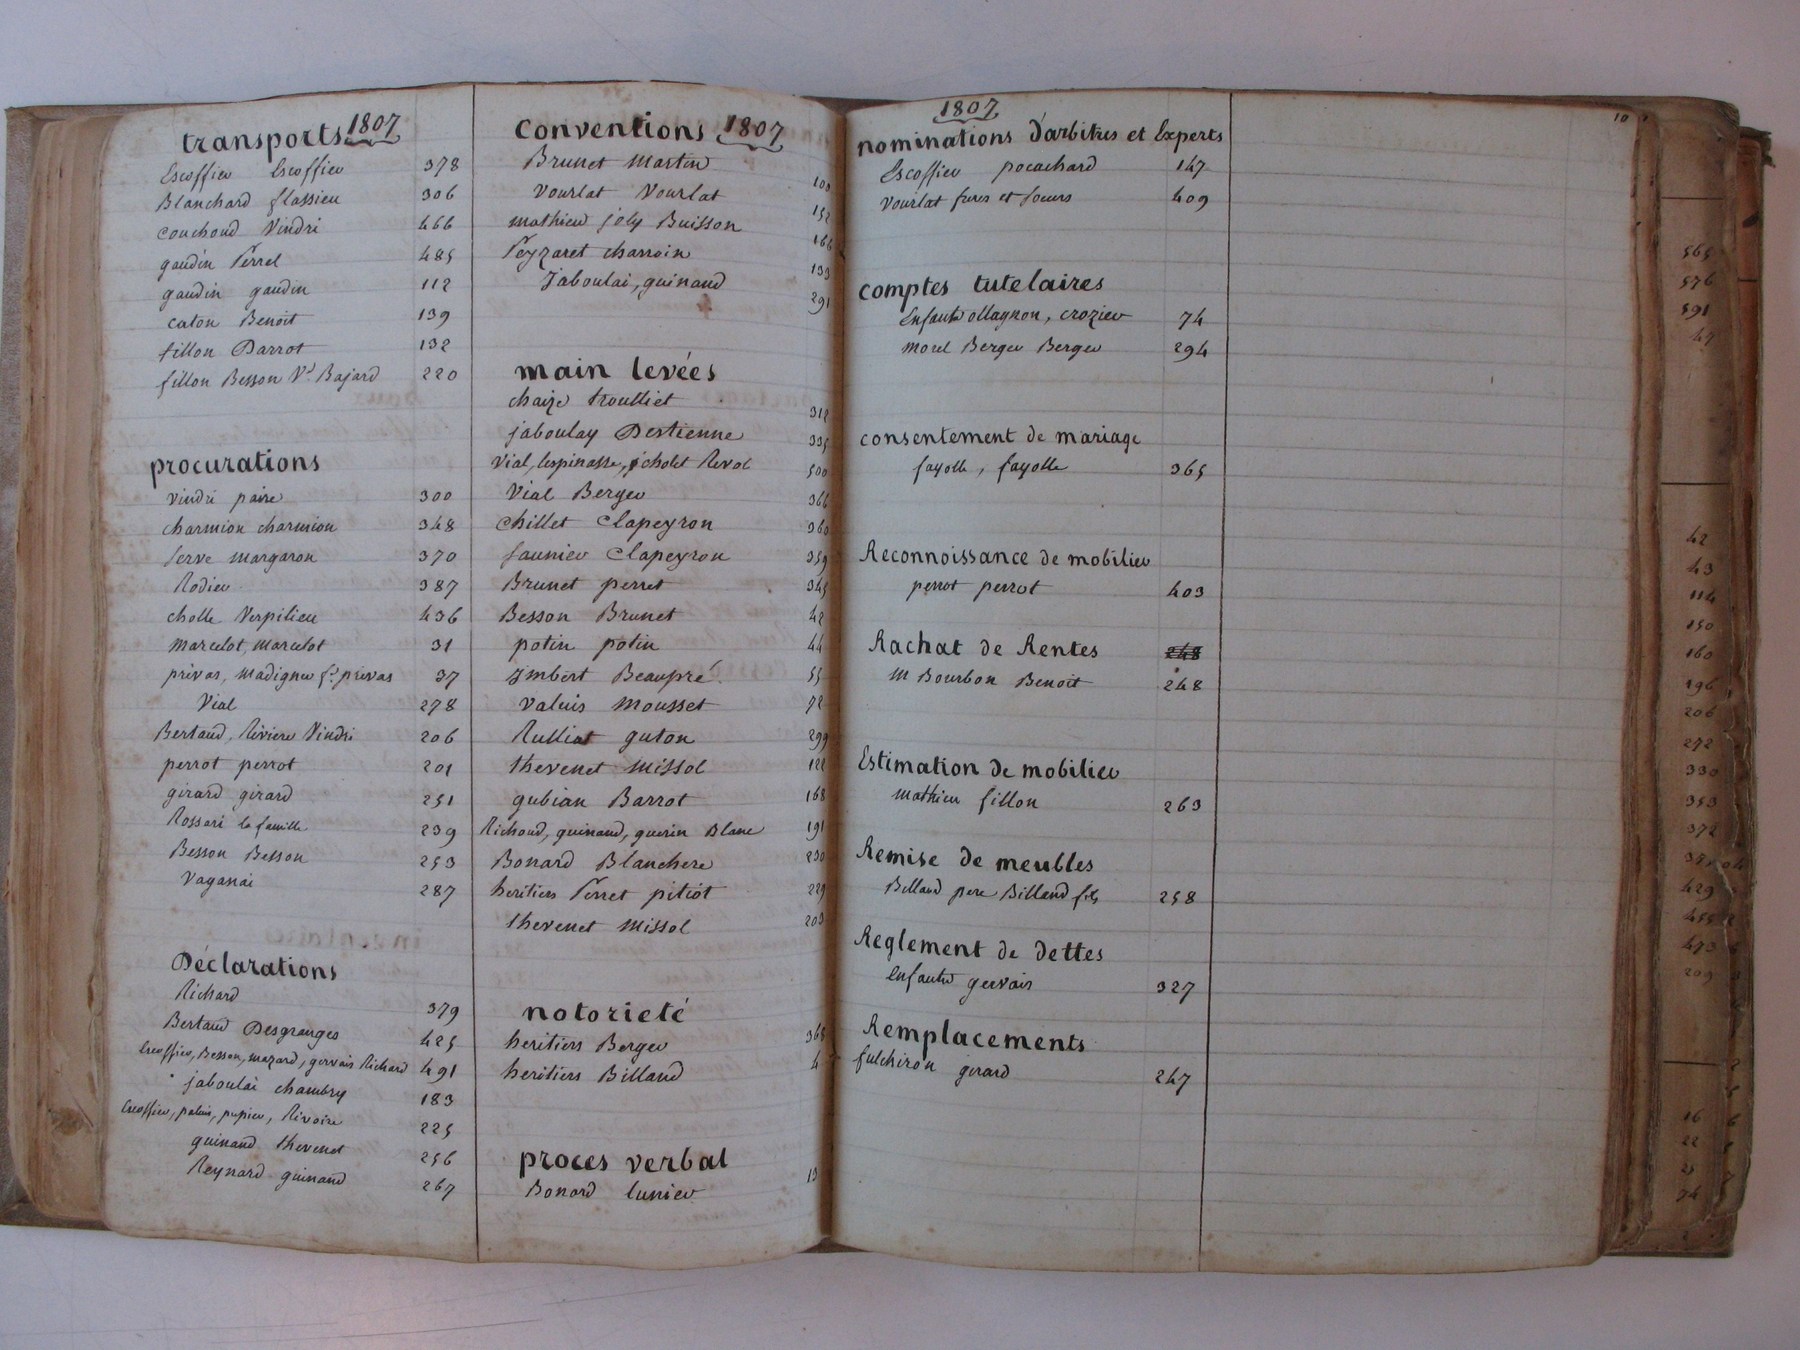 transports 1807
Escoffier Escoffier 378
Blanchard flassieu 306
couchoud Vindri 466
gaudin Perrel 485
gaudin gaudin 112
caton Benoit 139
fillon Barrot 132
fillon Besson Vᵉ Bajard 220
procurations
vindri paire 300
charmion charmion 348
serve margaron 370
Rodieu 387
cholle Verpilieu 436
marcelot, marcelot 31
privas, madigner fᵉ privas 37
Vial 278
Bertaud, Riviere Vindri 206
perrot perrot 201
girard girard 251
Rossari la famille 239
Besson Besson 253
Vaganai 287
Déclarations
Richard 379
Bertaud Desgranges 425
Escoffier, Besson, mazard, gervais Richard 491
jaboulai chambry 183
Escoffier, palais, pupier, Rivoire 225
guinand thevenet 256
Reynard guinand 267
Conventions 1807
Brunet Martin 100
Vourlat Vourlat 152
mathieu joly Buisson 166
Peyzaret charroin 133
Jaboulai, guinand 291
main levées
chaize troulliet 312
jaboulay Destienne 335
Vial, lespinasse, cholet Revol 500
Vial Berger 366
Chillet Clapeyron 360
saunier Clapeyron 359
Brunet perret 345
Besson Brunet 42
potin potin 44
Imbert Beaupré 55
Valuis Mousset 72
Rulliat guton 299
thevenet missol 122
gubian Barrot 168
Richoud, guinand, guerin Blanc 191
Bonard Blanchere 230
heritiers Perret pitiot 229
thevenet missol 203
notorieté
heritiers Berger 368
heritiers Billand 4
proces verbal
Bonard lunier 13
1807
nominations d'arbitres et Experts
Escoffier pocachard 147
Vourlat freres et soeurs 409
comptes tutelaires
Enfants ollagnon, crozier 74
morel Berger Berger 294
consentement de mariage
fayolle, fayolle 365
Reconnoissance de mobilier
perrot perrot 403
Rachat de Rentes 248
M Bourbon Benoit 248
Estimation de mobilier
mathieu fillon 263
Remise de meubles
Billand pere Billand fils 258
Reglement de dettes
Enfants gervais 327
Remplacements
fulchiron girard 247
10
565
576
591
47
42
43
114
150
160
196
206
272
330
353
372
429
455
473
209
16
22
74